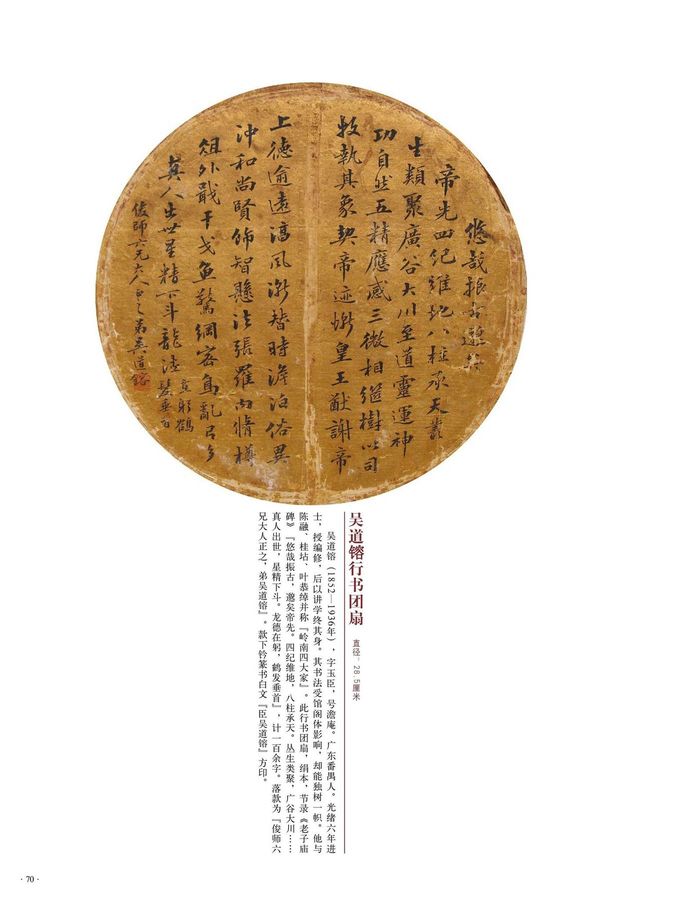 悠哉振古邈矣
帝先四紀維地八柱承天叢
生類聚廣谷大川至道靈運神
功自然五精應感三微相繼樹以司
牧執其象契帝迹慚皇王猷謝帝
上德逾遠淳風漸替時澆俗異
沖和尚賢飾智懸法張羅內脩樽
俎外戢干戈魚驚網密鳥亂弓多
真人出世星精下斗龍德
在躬鶴
髮垂首
俊師六兄大人正之弟吳道鎔
吴道镕行书团扇
直径 28.5厘米
吴道镕(1852—1936年),字玉臣,号澹庵。广东番禺人。光绪六年进
士,授编修,后以讲学终其身。其书法受馆阁体影响,却能独树一帜。他与
陈融、桂坫、叶恭绰并称『岭南四大家』。此行书团扇,绢本,节录《老子庙
碑》『悠哉振古,邈矣帝先。四纪维地,八柱承天。丛生类聚,广谷大川……
真人出世,星精下斗。龙德在躬,鹤发垂首』,计一百余字。落款为『俊师六
兄大人正之,弟吴道镕』。款下钤篆书白文『臣吴道镕』方印。
· 70 ·